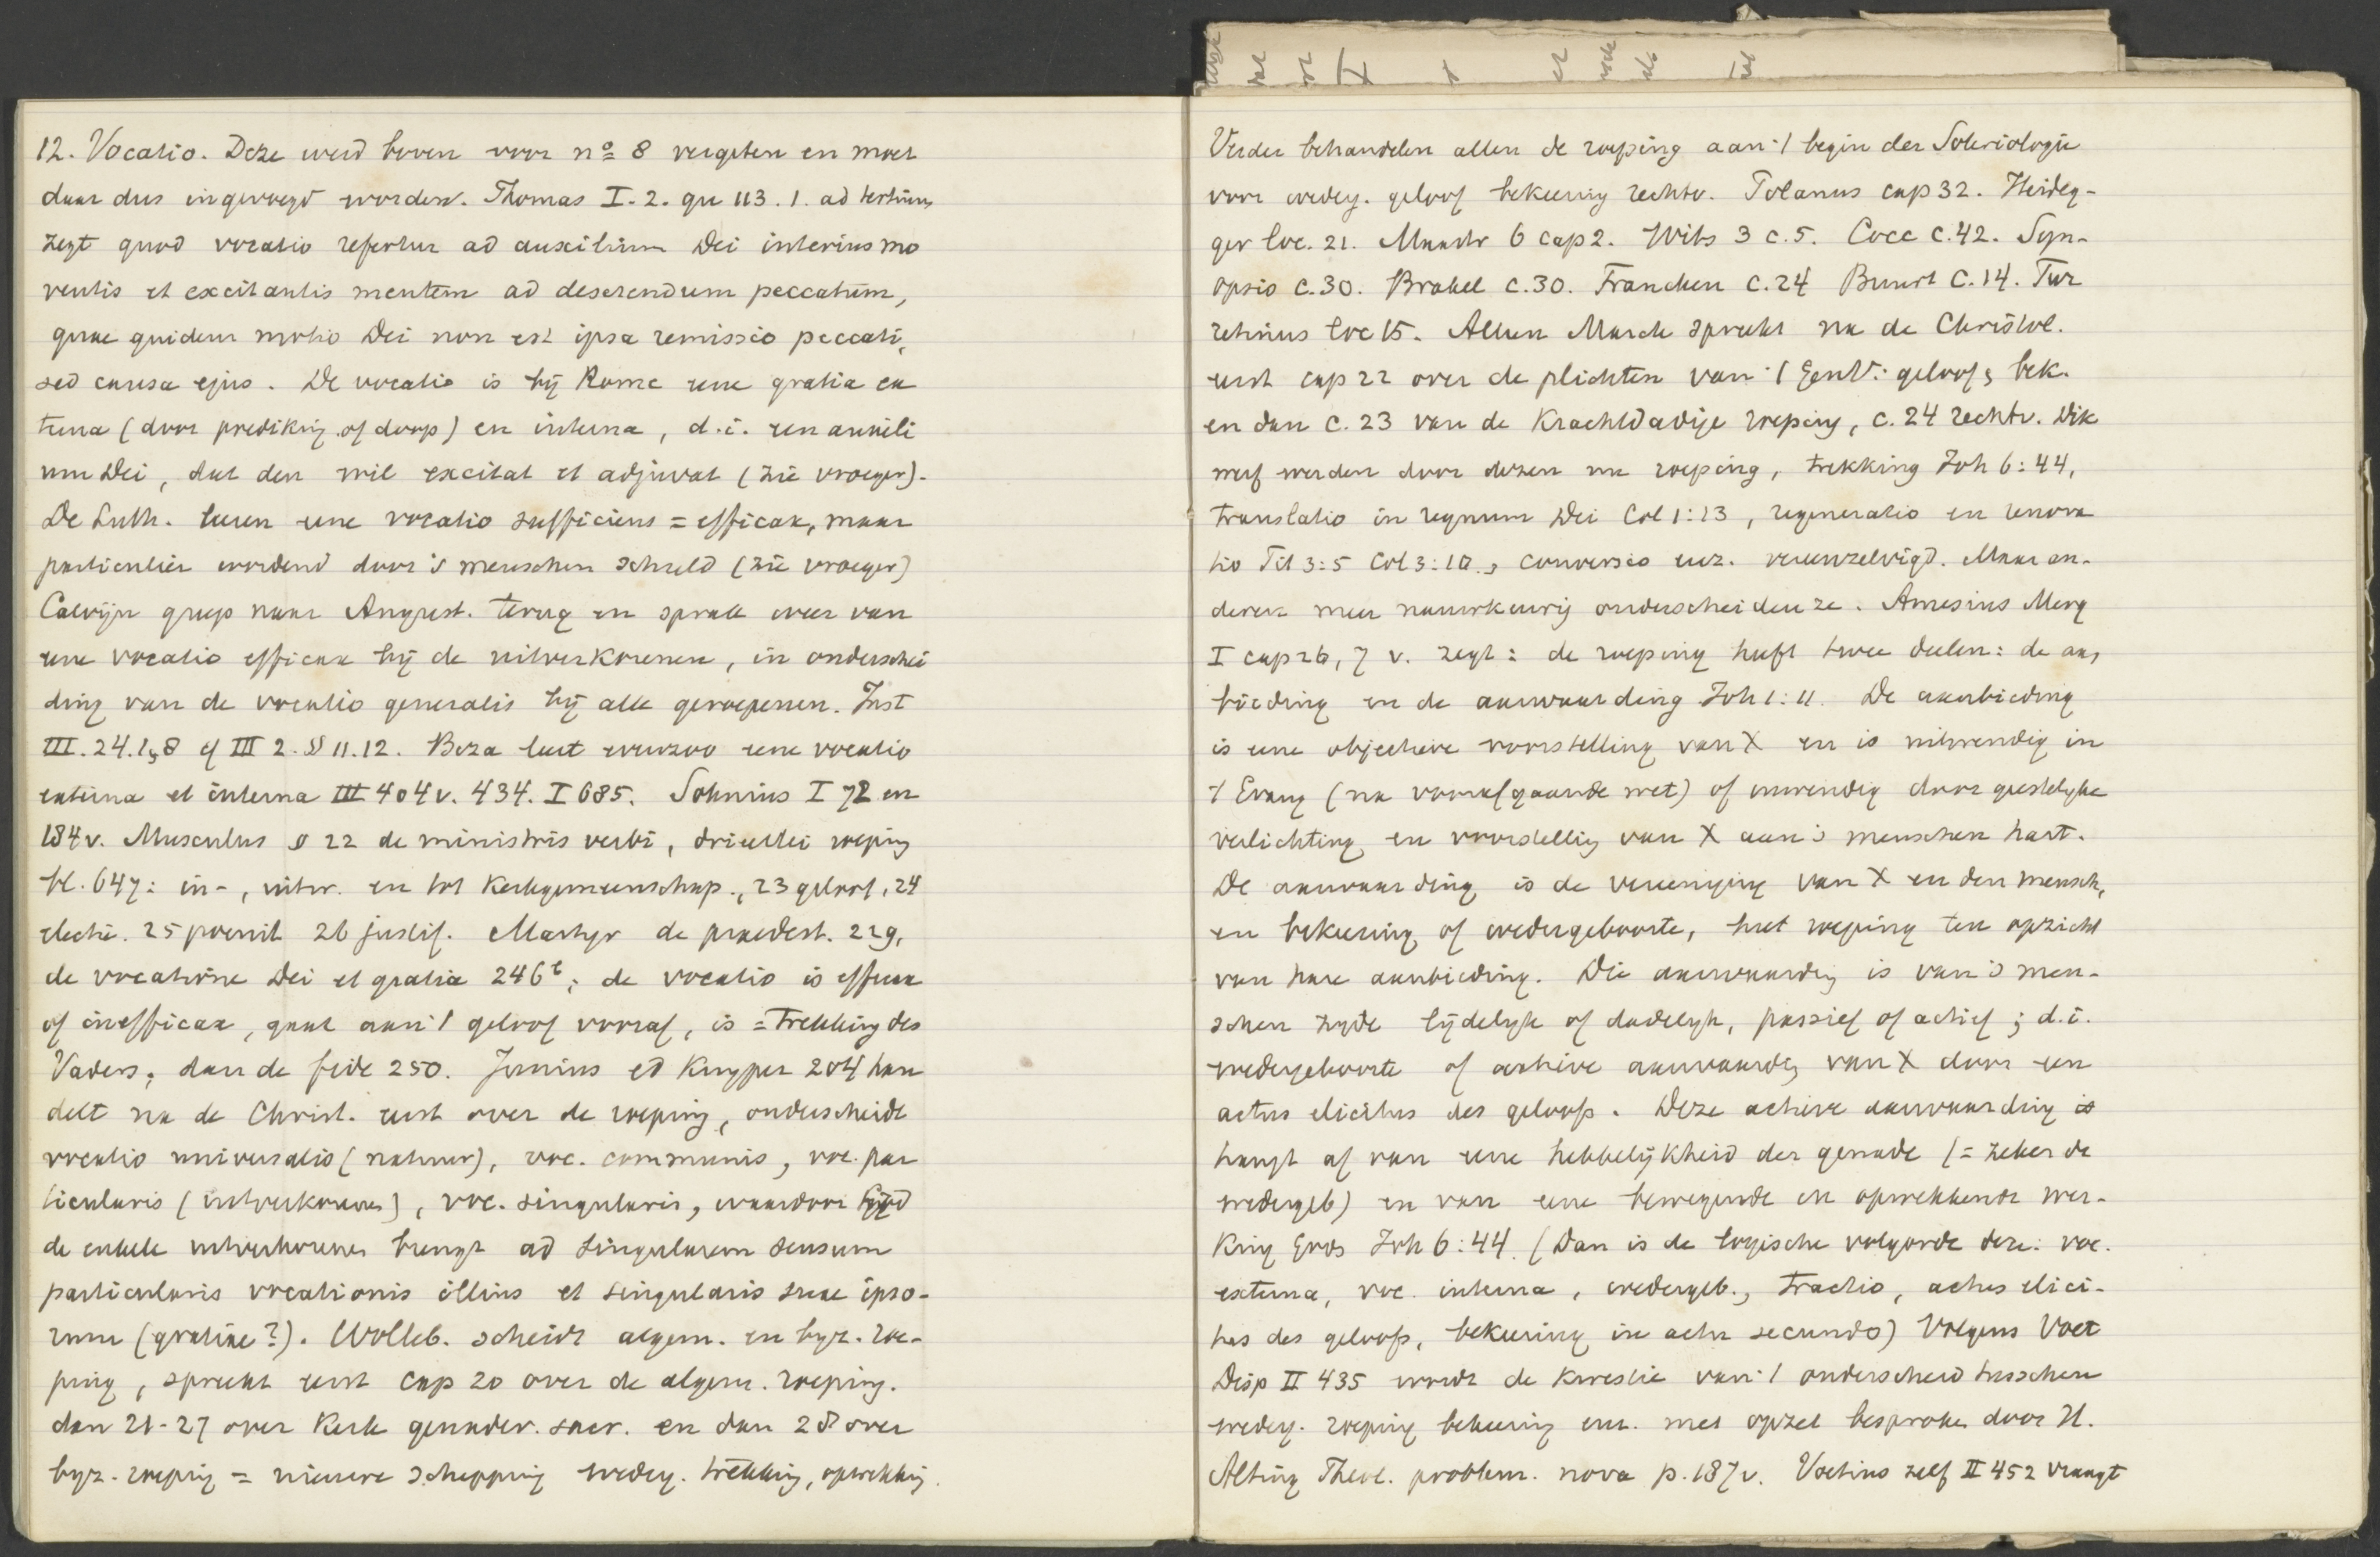 12. Vocatio. Deze werd boven voor nº 8 vergeten en moet
daar dus ingevoegd worden. Thomas I. 2. qu 113. 1. ad tertium
zegt quod vocatio refertur ad auxilium Dei interius mo
ventis et excitantis mentem ad deserendum peccatum,
quae quidem motio Dei non est ipsa remissio peccati,
sed causa ejus. De vocatio is bij Rome eene gratia ex
terna (door prediking of doop) en interna, d.i. een auxili
um Dei, dat den wil excitat et adjuvat (zie vroeger).
De Luth. leeren eene vocatio sufficiens = efficax, maar
particulier wordend door 's menschen schuld (zie vroeger)
Calvijn greep naar August. terug en sprak weer van
eene vocatio efficax bij de uitverkorenen, in onderschei
ding van de vocatio generalis bij alle geroepenen. Inst
III. 24. 1, 8 cf III 2. §§ 11. 12. Beza leert evenzoo eene vocatio
externa et interna III 404 v. 434. I 685. Sohnius I 72 en
184 v. Musculus § 22 de ministris verbi, drieërlei roeping
bl. 647: in-, uitw. en tot Kerkgemeenschap., 23 geloof, 24
electie. 25 poenit 26 justif. Martyr de praedest. 229,
de vocatione Dei et gratia 246b; de vocatio is efficax
of inefficax, gaat aan 't geloof vooraf, is = trekking des
Vaders; dan de fide 250. Junius ed Kuyper 204 han
delt na de Christ. eerst over de roeping, onderscheidt
vocatio universalis (natuur), voc. communis, voc. par
ticularis (uitverkorenen), voc. singularis, waardoor God
de enkele uitverkorenen brengt ad singularem sensum
particularis vocationis illius et singularis suae ipso-
rum (gratiae?). Wolleb. scheidt algem. en byz. roe-
ping, spreekt eerst cap 20 over de algem. roeping.
dan 21-27 over Kerk genadev. sacr. en dan 28 over
byz. roeping = nieuwe schepping wederg. trekking, opwekking.
Verder behandelen allen de roeping aan 't begin der Soteriologie
voor wederg. geloof bekeering rechtv. Polanus cap 32. Heideg-
ger loc. 21. Mastr 6 cap 2. Wits 3 c. 5. Cocc c. 42. Syn-
opsis c. 30. Brakel c. 30. Francken c. 24 Buurt c. 14. Tur
retinus loc 15. Alleen Marck spreekt na de Christol.
eerst cap 22 over de plichten van 't GenV.: geloof, bek.
en dan c. 23 van de Krachtdadige roeping, c. 24 rechtv. Dik
werf werden door dezen nu roeping, trekking Joh 6:44,
translatio in regnum Dei Col 1:13, regeneratio en renova
tio Tit 3:5 Col 3:10., conversio enz. vereenzelvigd. Maar an-
deren meer nauwkeurig onderscheiden ze. Amesius Merg
I cap 26, 7 v. zegt: de roeping heeft twee deelen: de aan
bieding en de aanvaarding Joh 1:11. De aanbieding
is eene objectieve voorstelling van X en is uitwendig in
't Evang (na voorafgaande wet) of inwendig door geestelyke
verlichting en voorstelling van X aan 's menschen hart.
De aanvaarding is de vereeniging van X en den mensch,
en bekeering of wedergeboorte, heet roeping ten opzicht
van hare aanbieding. Die aanvaarding is van 's men-
schen zyde lijdelyk of dadelyk, passief of actief; d.i.
wedergeboorte of actieve aanvaarding van X door een
actus elicitus des geloofs. Deze actieve aanvaarding is
hangt af van eene hebbelijkheid der genade (= zeker de
wedergeb) en van eene bewegende en opwekkende wer-
king Gods Joh 6:44. (Dan is de logische volgorde deze: voc.
externa, voc. interna, wedergeb., tractio, actus elici-
tus des geloofs, bekeering in actu secundo) Volgens Voet
Disp II 435 wordt de kwestie van 't onderscheid tusschen
wederg. roeping bekeering enz. met opzet besproken door H.
Alting Theol. problem. nova p. 187 v. Voetius zelf II 452 vraagt